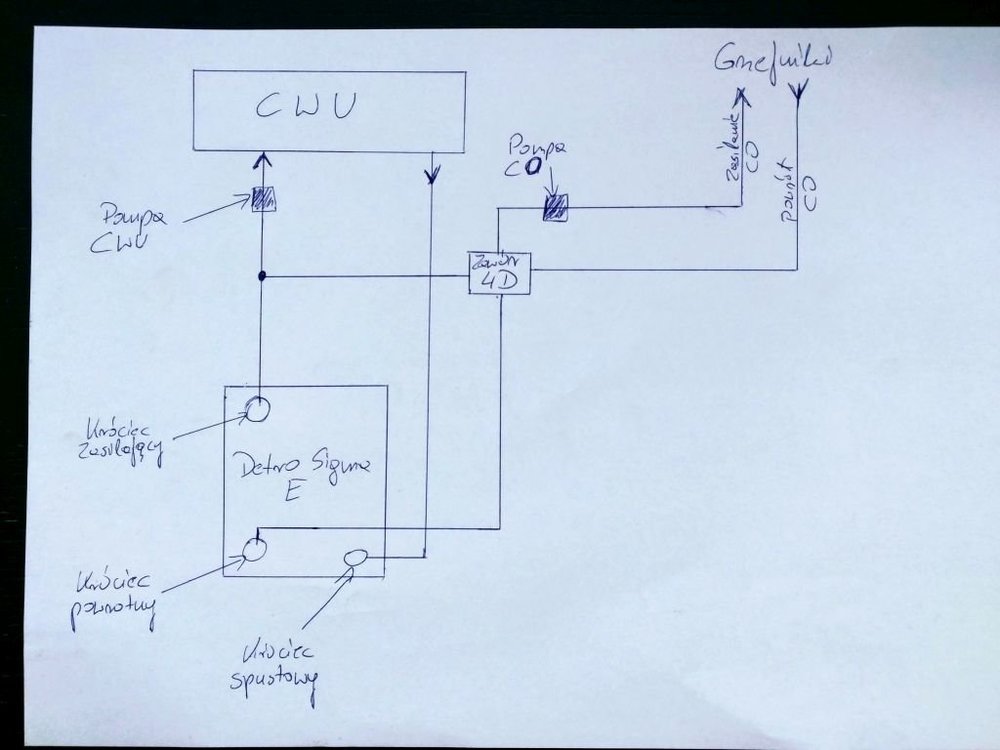 Grzejniki
CWU
Pompa
CO
Zasilanie
CO
Powrót
CO
Pompa
CWU
Zawór
4D
Króciec
Zasilający
Defro Sigma
E
Króciec
powrotny
Króciec
spustowy